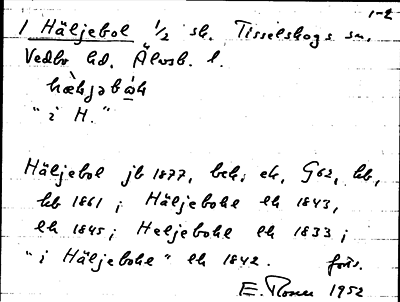 1-2
1 Häljebol 1/2 sk. Tisselskogs sn.
Vedbo hd. Älvsb. l.
"i H."
Häljebol jb 1877, bek; ek, G62, hb,
kb 1861; Häljebohl ek 1843,
ek 1845; Heljebohl ek 1833;
"i Häljebohl" ek 1842. forts.
E. Rosen 1952